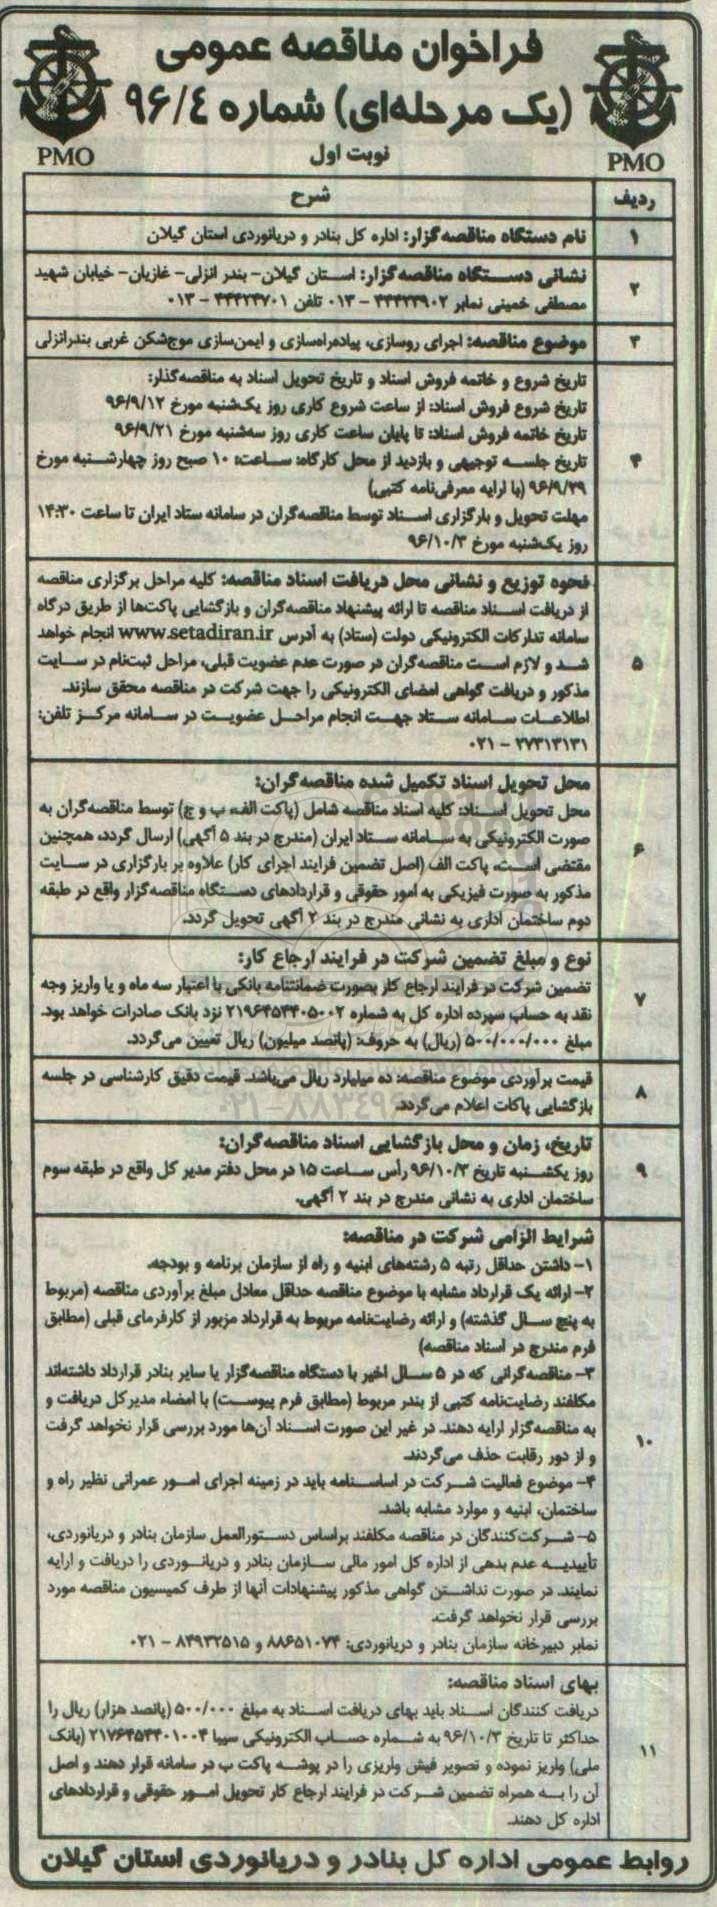 فراخوان مناقصه عمومی
(یک مرحله‌ای) شماره ۹۶/۴
نوبت اول
PMO
PMO
ردیف
شرح
۱
نام دستگاه مناقصه‌گزار: اداره کل بنادر و دریانوردی استان گیلان
۲
نشانی دستگاه مناقصه‌گزار: استان گیلان- بندر انزلی- غازیان- خیابان شهید
مصطفی خمینی نمابر ۴۴۴۲۳۹۰۲ - ۰۱۳ تلفن ۴۴۴۲۴۷۰۱ - ۰۱۳
۳
موضوع مناقصه: اجرای روسازی، پیاده‌راه‌سازی و ایمن‌سازی موج‌شکن غربی بندرانزلی
۴
تاریخ شروع و خاتمه فروش اسناد و تاریخ تحویل اسناد به مناقصه‌گذار:
تاریخ شروع فروش اسناد: از ساعت شروع کاری روز یک‌شنبه مورخ ۹۶/۹/۱۲
تاریخ خاتمه فروش اسناد: تا پایان ساعت کاری روز سه‌شنبه مورخ ۹۶/۹/۲۱
تاریخ جلسه توجیهی و بازدید از محل کارگاه: ساعت: ۱۰ صبح روز چهارشنبه مورخ
۹۶/۹/۲۹ (با ارایه معرفی‌نامه کتبی)
مهلت تحویل و بارگزاری اسناد توسط مناقصه‌گران در سامانه ستاد ایران تا ساعت ۱۴:۳۰
روز یک‌شنبه مورخ ۹۶/۱۰/۳
۵
نحوه توزیع و نشانی محل دریافت اسناد مناقصه: کلیه مراحل برگزاری مناقصه
از دریافت اسناد مناقصه تا ارائه پیشنهاد مناقصه‌گران و بازگشایی پاکت‌ها از طریق درگاه
سامانه تدارکات الکترونیکی دولت (ستاد) به آدرس www.setadiran.ir انجام خواهد
شد و لازم است مناقصه‌گران در صورت عدم عضویت قبلی، مراحل ثبت‌نام در سایت
مذکور و دریافت گواهی امضای الکترونیکی را جهت شرکت در مناقصه محقق سازند.
اطلاعات سامانه ستاد جهت انجام مراحل عضویت در سامانه مرکز تلفن:
۲۷۳۱۳۱۳۱ - ۰۲۱
۶
محل تحویل اسناد تکمیل شده مناقصه‌گران:
محل تحویل اسناد: کلیه اسناد مناقصه شامل (پاکت الف، ب و ج) توسط مناقصه‌گران به
صورت الکترونیکی به سامانه ستاد ایران (مندرج در بند ۵ آگهی) ارسال گردد، همچنین
مقتضی است، پاکت الف (اصل تضمین فرایند اجرای کار) علاوه بر بارگزاری در سایت
مذکور به صورت فیزیکی به امور حقوقی و قراردادهای دستگاه مناقصه‌گزار واقع در طبقه
دوم ساختمان اداری به نشانی مندرج در بند ۲ آگهی تحویل گردد.
۷
نوع و مبلغ تضمین شرکت در فرایند ارجاع کار:
تضمین شرکت در فرایند ارجاع کار بصورت ضمانتنامه بانکی با اعتبار سه ماه و یا واریز وجه
نقد به حساب سپرده اداره کل به شماره ۲۱۹۶۴۵۴۴۰۵۰۰۲ نزد بانک صادرات خواهد بود.
مبلغ ۵۰۰/۰۰۰/۰۰۰ (ریال) به حروف: (پانصد میلیون) ریال تعیین می‌گردد.
۸
قیمت برآوردی موضوع مناقصه: ده میلیارد ریال می‌باشد. قیمت دقیق کارشناسی در جلسه
بازگشایی پاکات اعلام می‌گردد.
۹
تاریخ، زمان و محل بازگشایی اسناد مناقصه‌گران:
روز یکشنبه تاریخ ۹۶/۱۰/۳ رأس ساعت ۱۵ در محل دفتر مدیر کل واقع در طبقه سوم
ساختمان اداری به نشانی مندرج در بند ۲ آگهی.
۱۰
شرایط الزامی شرکت در مناقصه:
۱- داشتن حداقل رتبه ۵ رشته‌های ابنیه و راه از سازمان برنامه و بودجه.
۲- ارائه یک قرارداد مشابه با موضوع مناقصه حداقل معادل مبلغ برآوردی مناقصه (مربوط
به پنج سال گذشته) و ارائه رضایتنامه مربوط به قرارداد مزبور از کارفرمای قبلی (مطابق
فرم مندرج در اسناد مناقصه)
۳- مناقصه‌گرانی که در ۵ سال اخیر با دستگاه مناقصه‌گزار یا سایر بنادر قرارداد داشته‌اند
مکلفند رضایت‌نامه کتبی از بندر مربوط (مطابق فرم پیوست) با امضاء مدیرکل دریافت و
به مناقصه‌گزار ارایه دهند. در غیر این صورت اسناد آن‌ها مورد بررسی قرار نخواهد گرفت
و از دور رقابت حذف می‌گردند.
۴- موضوع فعالیت شرکت در اساسنامه باید در زمینه اجرای امور عمرانی نظیر راه و
ساختمان، ابنیه و موارد مشابه باشد.
۵- شرکت‌کنندگان در مناقصه مکلفند براساس دستورالعمل سازمان بنادر و دریانوردی،
تأییدیه عدم بدهی از اداره کل امور مالی سازمان بنادر و دریانوردی را دریافت و ارایه
نمایند. در صورت نداشتن گواهی مذکور پیشنهادات آنها از طرف کمیسیون مناقصه مورد
بررسی قرار نخواهد گرفت.
نمابر دبیرخانه سازمان بنادر و دریانوردی: ۸۸۶۵۱۰۷۴ و ۸۴۹۳۲۵۱۵ - ۰۲۱
۱۱
بهای اسناد مناقصه:
دریافت کنندگان اسناد باید بهای دریافت اسناد به مبلغ ۵۰۰/۰۰۰ (پانصد هزار) ریال را
حداکثر تا تاریخ ۹۶/۱۰/۳ به شماره حساب الکترونیکی سیبا ۲۱۷۶۴۵۴۴۰۱۰۰۴ (بانک
ملی) واریز نموده و تصویر فیش واریزی را در پوشه پاکت ب در سامانه قرار دهند و اصل
آن را به همراه تضمین شرکت در فرایند ارجاع کار تحویل امور حقوقی و قراردادهای
اداره کل دهند.
روابط عمومی اداره کل بنادر و دریانوردی استان گیلان